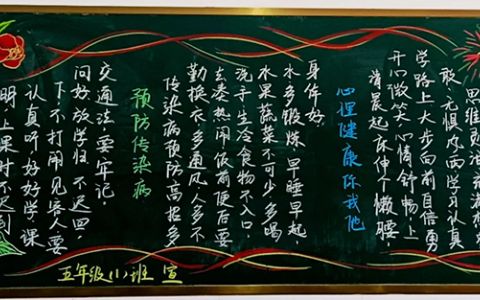 思维灵活充满想
敢无惧风雨学习认真
学路上大步向前自信勇
开心微笑心情舒畅上
清晨起床伸个懒腰
心理健康你我他
身体好
水多锻炼早睡早起，
水果蔬菜不可少多喝
洗手生冷食物不入口
去凑热闹饭前便后要
勤换衣多通风人多不
传染病预防高招多
预防传染病
交通法，要牢记.
问好放学归不迟回
下不打闹见客人要
认真听好好学课
明上课时不迟到
五年级(1)班 宣